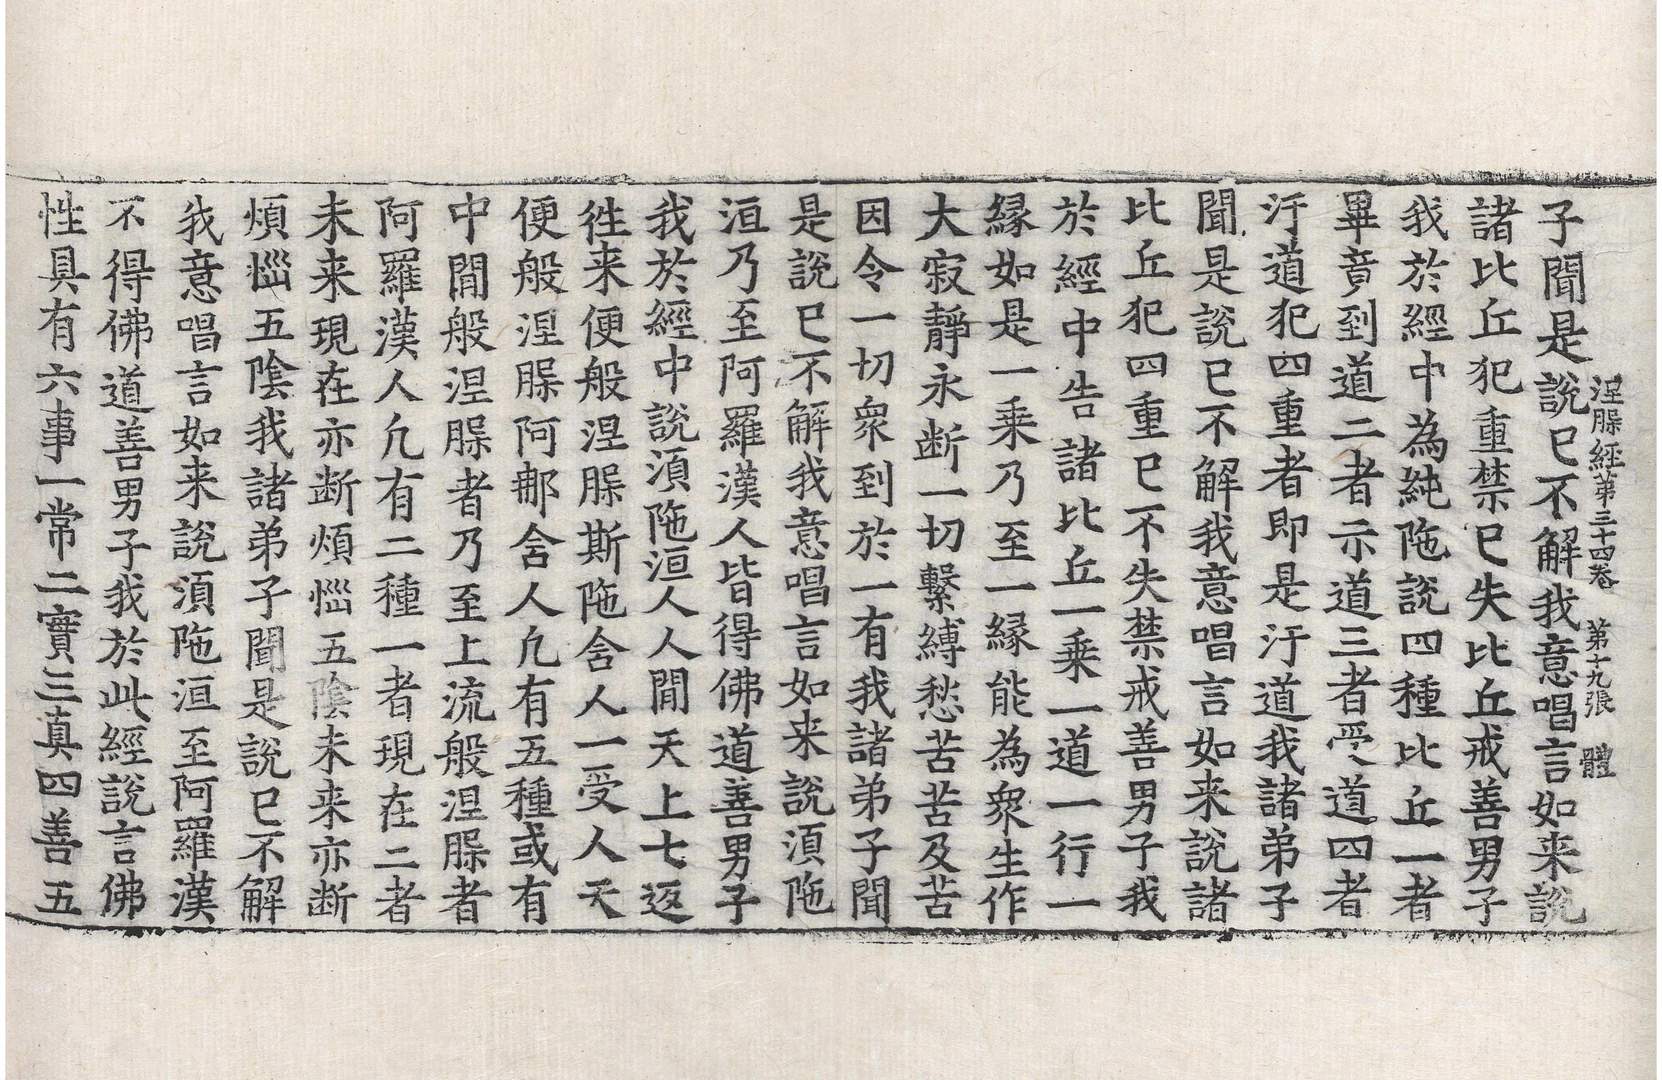 涅槃經第三十四卷　第十九張　體
子聞是說已不解我意唱言如来說
諸比丘犯重禁已失比丘戒善男子
我於經中為純陁說四種比丘一者
畢竟到道二者示道三者受道四者
汙道犯四重者即是汙道我諸弟子
聞是說已不解我意唱言如来說諸
比丘犯四重已不失禁戒善男子我
於經中告諸比丘一乗一道一行一
緣如是一乗乃至一緣能為衆生作
大寂靜永断一切繫縛愁苦苦及苦
因令一切衆到於一有我諸弟子聞
是說已不解我意唱言如来說湏陁
洹乃至阿羅漢人皆得佛道善男子
我於經中說湏陁洹人人閒天上七返
徃来便般涅槃斯陁含人一受人天
便般涅槃阿那含人凢有五種或有
中閒般涅槃者乃至上流般涅槃者
阿羅漢人凢有二種一者現在二者
未来現在亦断煩惱五陰未来亦断
煩惱五陰我諸弟子聞是說已不解
我意唱言如来說湏陁洹至阿羅漢
不得佛道善男子我於此經說言佛
性具有六事一常二實三真四善五